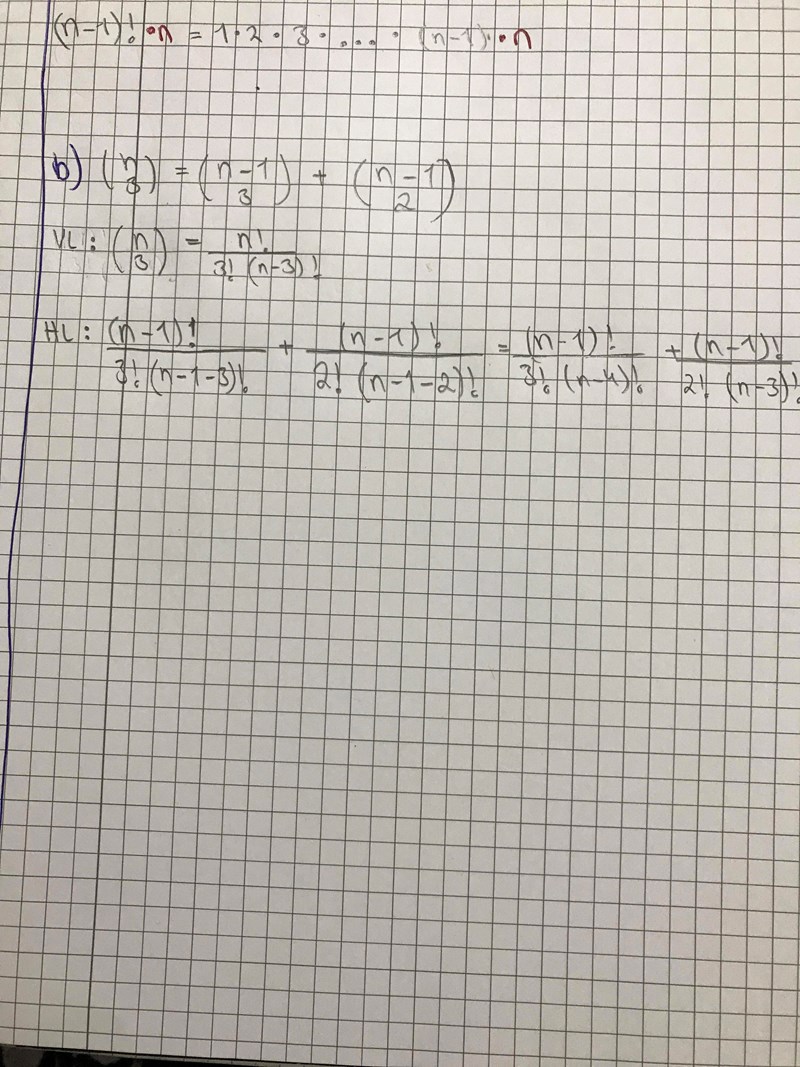 (n-1)! · n = 1 · 2 · 3 · .... · (n-1) · n
b) (n 3) = (n-1 3) + (n-1 2)
VL: (n 3) = n! / 3! (n-3)!
HL: (n-1)! / 3! (n-1-3)! + (n-1)! / 2! (n-1-2)! = (n-1)! / 3! (n-4)! + (n-1)! / 2! (n-3)!